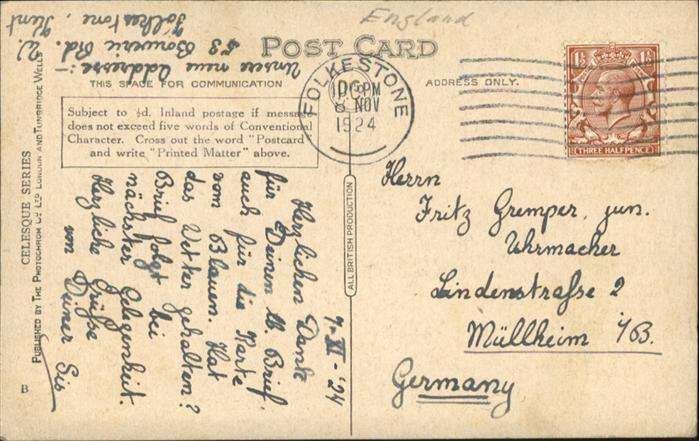 England
POST CARD
THIS SPACE FOR COMMUNICATION
ADDRESS ONLY.
Unsere neue Addresse:-
53 Bouverie Rd. W.
Folkestone, Kent
Subject to ½d. Inland postage if message
does not exceed five words of Conventional
Character. Cross out the word "Postcard
and write "Printed Matter" above.
FOLKESTONE
PM
8 NOV
1924
1½ 1½
THREE HALFPENCE
CELESQUE SERIES
PUBLISHED BY THE PHOTOCHROM CO LTD LONDON AND TUNBRIDGE WELLS
ALL BRITISH PRODUCTION
B
9-XI-'24
Herzlichen Dank
für Deinen lb. Brief,
auch für die Karte
vom Blauen. Hat
das Wetter gehalten?
Brief folgt bei
nächster Gelegenheit.
Herzliche Grüße
von Deiner Sis
Herrn
Fritz Gremper, jun.
Uhrmacher
Lindenstraße 2
Müllheim i/B.
Germany